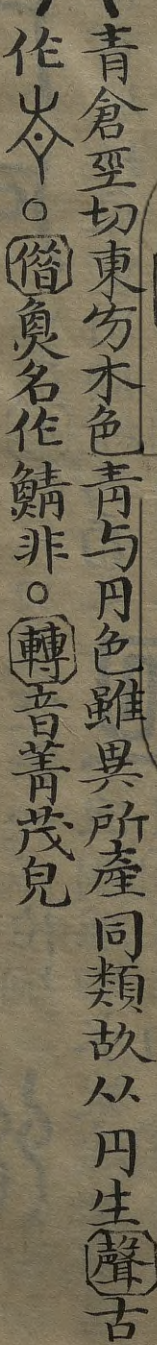 青倉巠切東方木色青与円色雖異所產同類故从円生聲古
作。僭魚名作鯖非。轉音菁茂皃